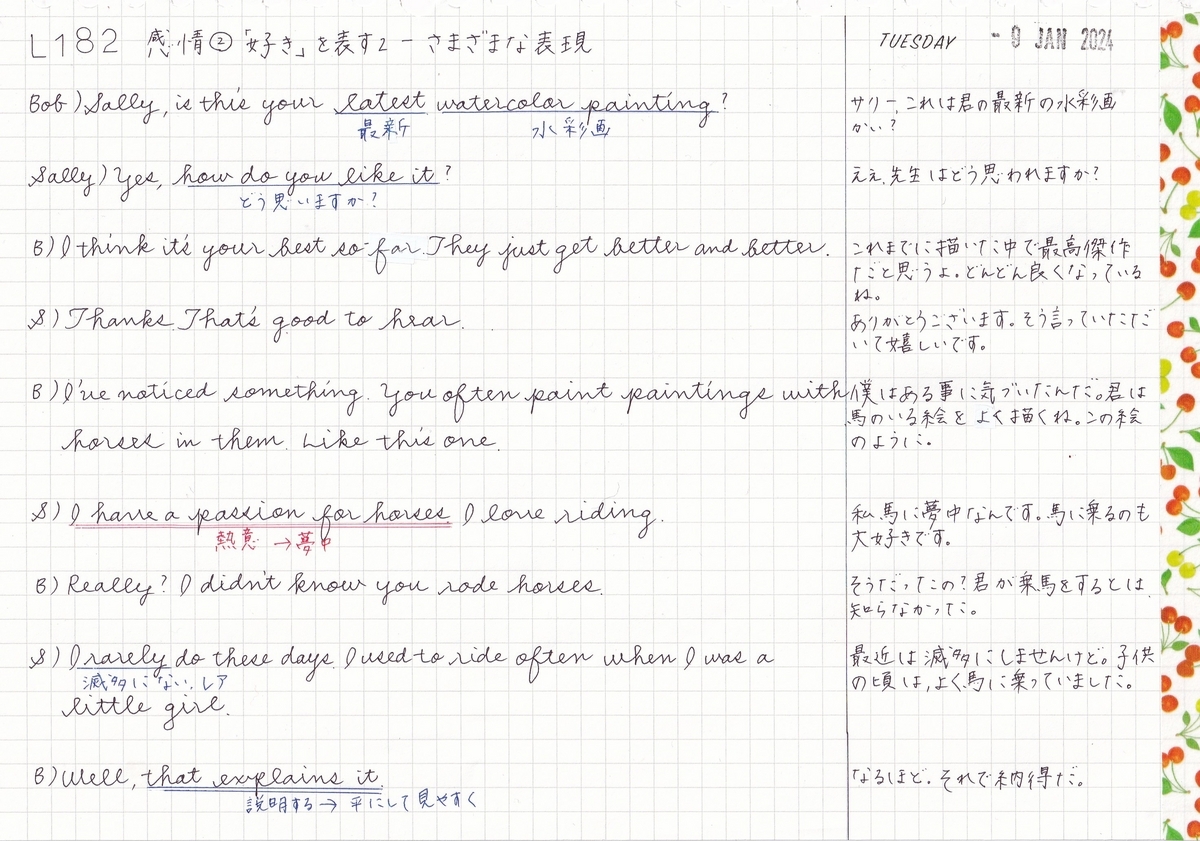 L182 感情②「好き」を表す2 － さまざまな表現
TUESDAY - 9 JAN 2024
Bob) Sally, is this your latest watercolor painting?
最新 水彩画
サリー、これは君の最新の水彩画
かい?
Sally) Yes, how do you like it?
どう思いますか?
ええ、先生はどう思われますか?
B) I think it's your best so far. They just get better and better.
これまでに描いた中で最高傑作
だと思うよ。どんどん良くなっている
ね。
S) Thanks. That's good to hear.
ありがとうございます。そう言っていただ
いて嬉しいです。
B) I've noticed something. You often paint paintings with
horses in them. Like this one.
僕はある事に気づいたんだ。君は
馬のいる絵をよく描くね。この絵
のように。
S) I have a passion for horses. I love riding.
熱意 →夢中
私、馬に夢中なんです。馬に乗るのも
大好きです。
B) Really? I didn't know you rode horses.
そうだったの?君が乗馬をするとは、
知らなかった。
S) I rarely do these days. I used to ride often when I was a
滅多にない、レア
little girl.
最近は滅多にしませんけど。子供
の頃は、よく馬に乗っていました。
B) Well, that explains it.
説明する→ 平にして見やすく
なるほど。それで納得だ。